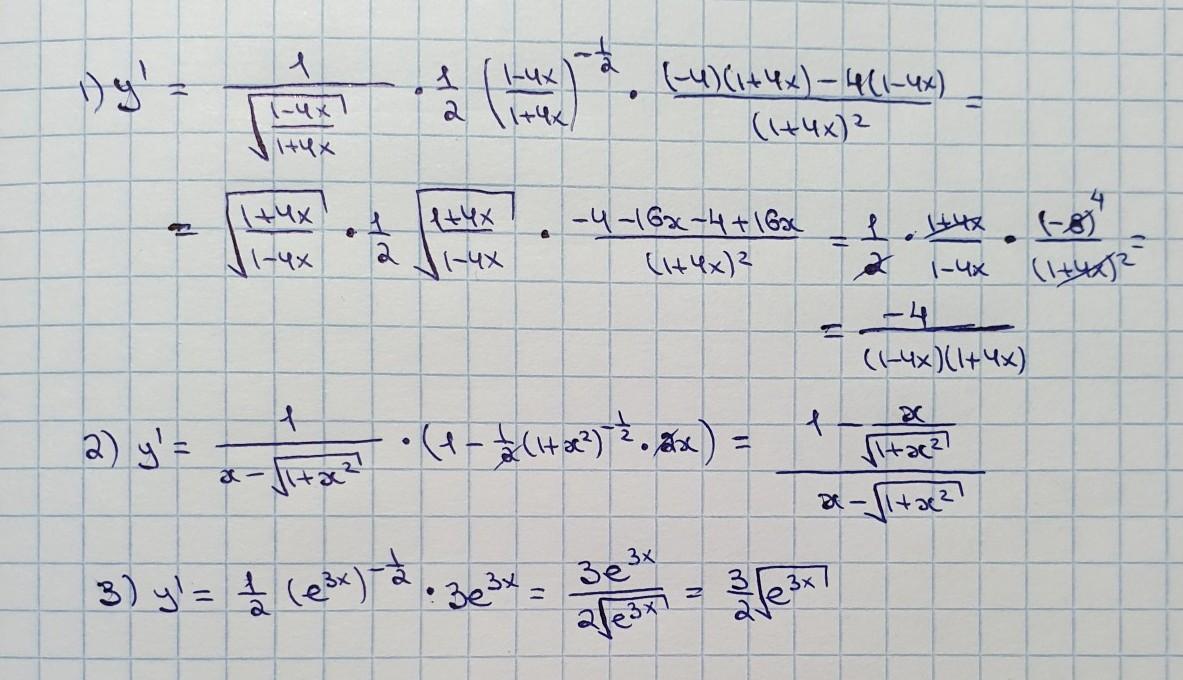 1) y' = 1/√((1-4x)/(1+4x)) · 1/2 ((1-4x)/(1+4x))^(-1/2) · ((-4)(1+4x) - 4(1-4x))/(1+4x)² =
= √((1+4x)/(1-4x)) · 1/2 √((1+4x)/(1-4x)) · (-4-16x-4+16x)/(1+4x)² = 1/2 · (1+4x)/(1-4x) · (-8)⁴/(1+4x)² =
= -4/((1-4x)(1+4x))
2) y' = 1/(x-√(1+x²)) · (1 - 1/2(1+x²)^(-1/2) · 2x) = (1 - x/√(1+x²))/(x-√(1+x²))
3) y' = 1/2 (e^(3x))^(-1/2) · 3e^(3x) = 3e^(3x)/(2√(e^(3x))) = 3/2 √(e^(3x))